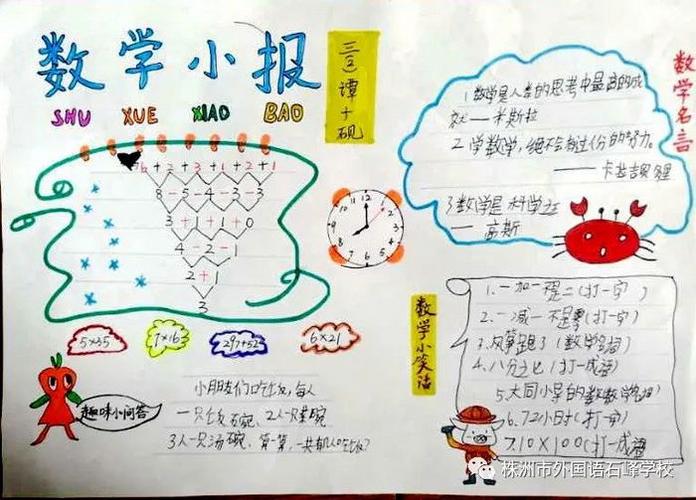 数学小报
SHU XUE XIAO BAO
三(2) 谭十砚
数学名言
1数学是人类的思考中最高的成
就——米斯拉
2.学数学,绝不会有过份的努力。
——卡拉
3数学是科学之
——高斯
6+2+3+1+2+1
8-5-4-3-3
3+1+1+0
4-2-1
2+1
3
12
1
2
3
4
5
6
7
8
9
10
11
5×35
7×16
297+52
6×21
趣味小问答
小朋友们吃饭,每人
一只饭碗、2人一只菜碗
3人一只汤碗、算一算,一共有几人吃饭?
数学小笑话
1.一加一不是二(打一字)
2.一减一不是零(打一字)
3.风筝跑了(数学名词)
4.八分之七(打一成语)
5.大同小异的数(数学名词)
6.72小时(打一字)
7.10×100(打一成语
株洲市外国语石峰学校